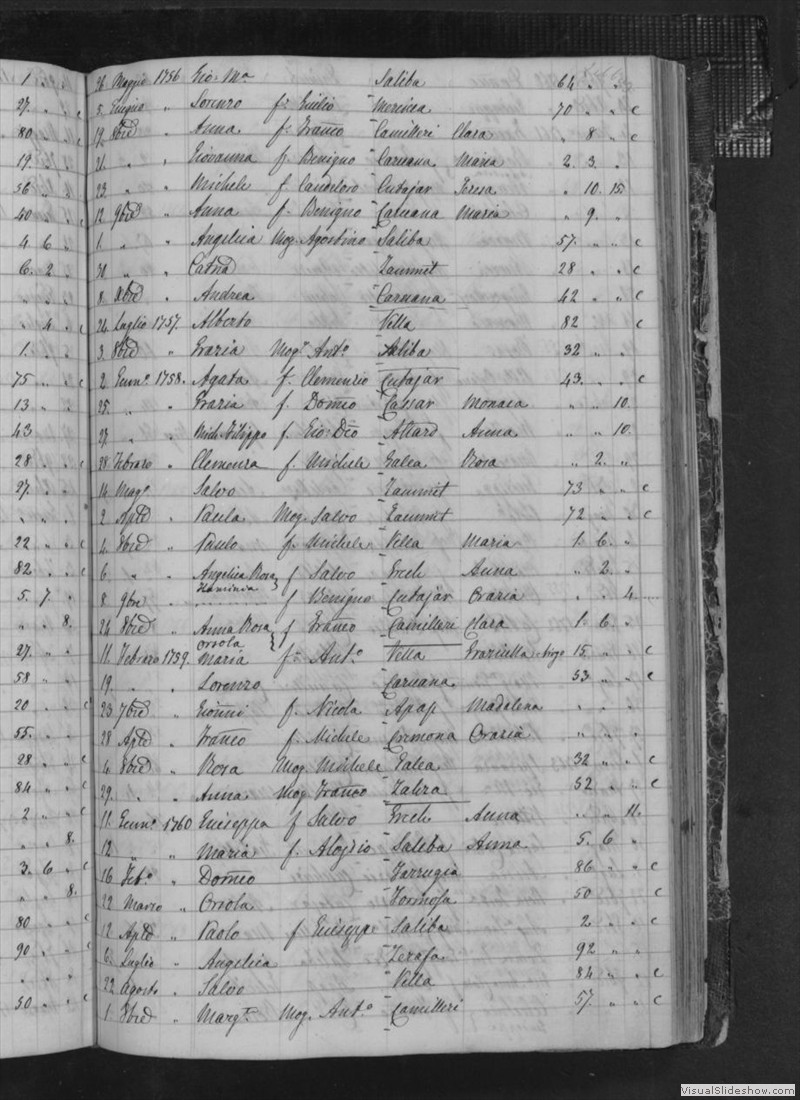 26 Maggio 1756 Gio. Ma Saliba 64 " "
5 Giugno " Lorenzo f: Giulio Morinea 70 " " c
19 8bre " Anna f: Franco Camilleri Clara " 8 " c
21 " " Giovanna f: Benigno Caruana Maria 2. 3. "
23 " " Michele f Candeloro Cutajar Teresa " 10. 15.
12 9bre " Anna f: Benigno Caruana Maria " 9. "
1. " " Angelica Mog. Agostino Saliba 57. " " c
30 " " Catna Zammit 28 " " c
8. Xbre " Andrea Caruana 42 " " c
24 Luglio 1757. Alberto Vella 82 c
3 8bre " Grazia Mog. Anto Saliba 32 " "
2 Genno 1758. Agata f. Clemenzio Cutajar 43. " " c
25. " Grazia f. Domco Cassar Monaca " " 10.
27. " Mich: Filippo f. Gio Dco Attard Anna " " 10.
28 Febraro " Clemenza f. Michele Galea Rosa " 2. "
14 Mago " Salvo Zammit 73 " " c
2 Aple " Paula Mog. Salvo Zammit 72 " " c
4 8bre " Paulo f. Michele Vella Maria 1. 6. "
6 " " Angelica Rosa f Salvo Grech Anna " 2. "
8 9bre " f Benigno Cutajar Grazia " " 4
24 8bre " Anna Rosa f Franco Camilleri Clara 1. 6. "
Orsola
11. Febraro 1759. Maria f: Anto Vella Graziulla 15. " " c
19. " Lorenzo Caruana. 53 " " c
23 7bre " Gionni f. Nicola Apap Madalena " " "
28 Aple " Franco f. Michele Carmona Grazia " " "
4 8bre " Rosa Mog. Michele Galea 32 " " c
29. " " Anna Mog Franco Zahra 52 " " c
11. Genno 1760 Giuseppa f Salvo Grech Anna " " 11.
12 " " Maria f. Aloysio Saliba Anna 5. 6 "
16 Febo " Domco Farrugia 86 " " c
22 Marzo " Orsola Formosa 50 c
12 Aple " Paolo f Giuseppe Saliba 2 " " c
6. Luglio " Angelica Zerafa. 92 " "
22 Agosto " Salvo Vella 84 " " c
1 8bre " Margta Mog. Anto Camilleri 57. " " c
VisualSlideshow.com